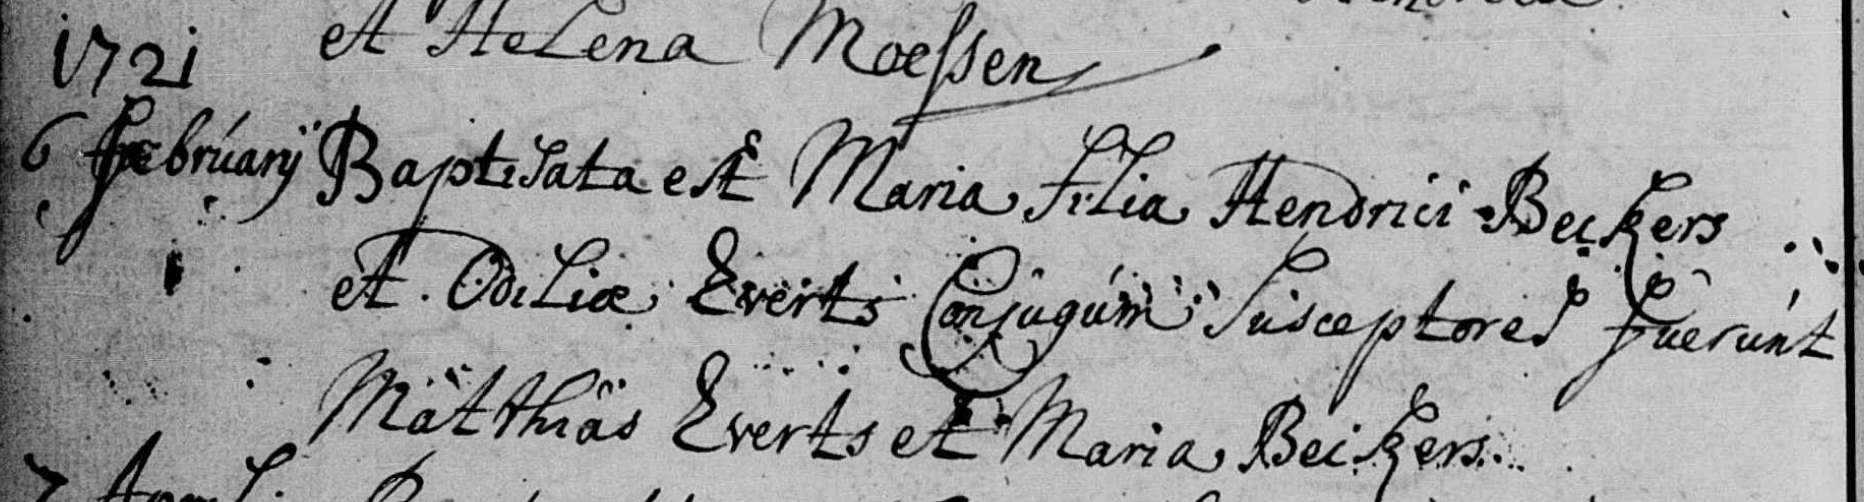 et Helena Moessen
1721
6 februarij Baptisata est Maria filia Hendrici Beckers
et Odiliæ Everts Conjugum Susceptores fuerunt
Matthias Everts et Maria Beckers